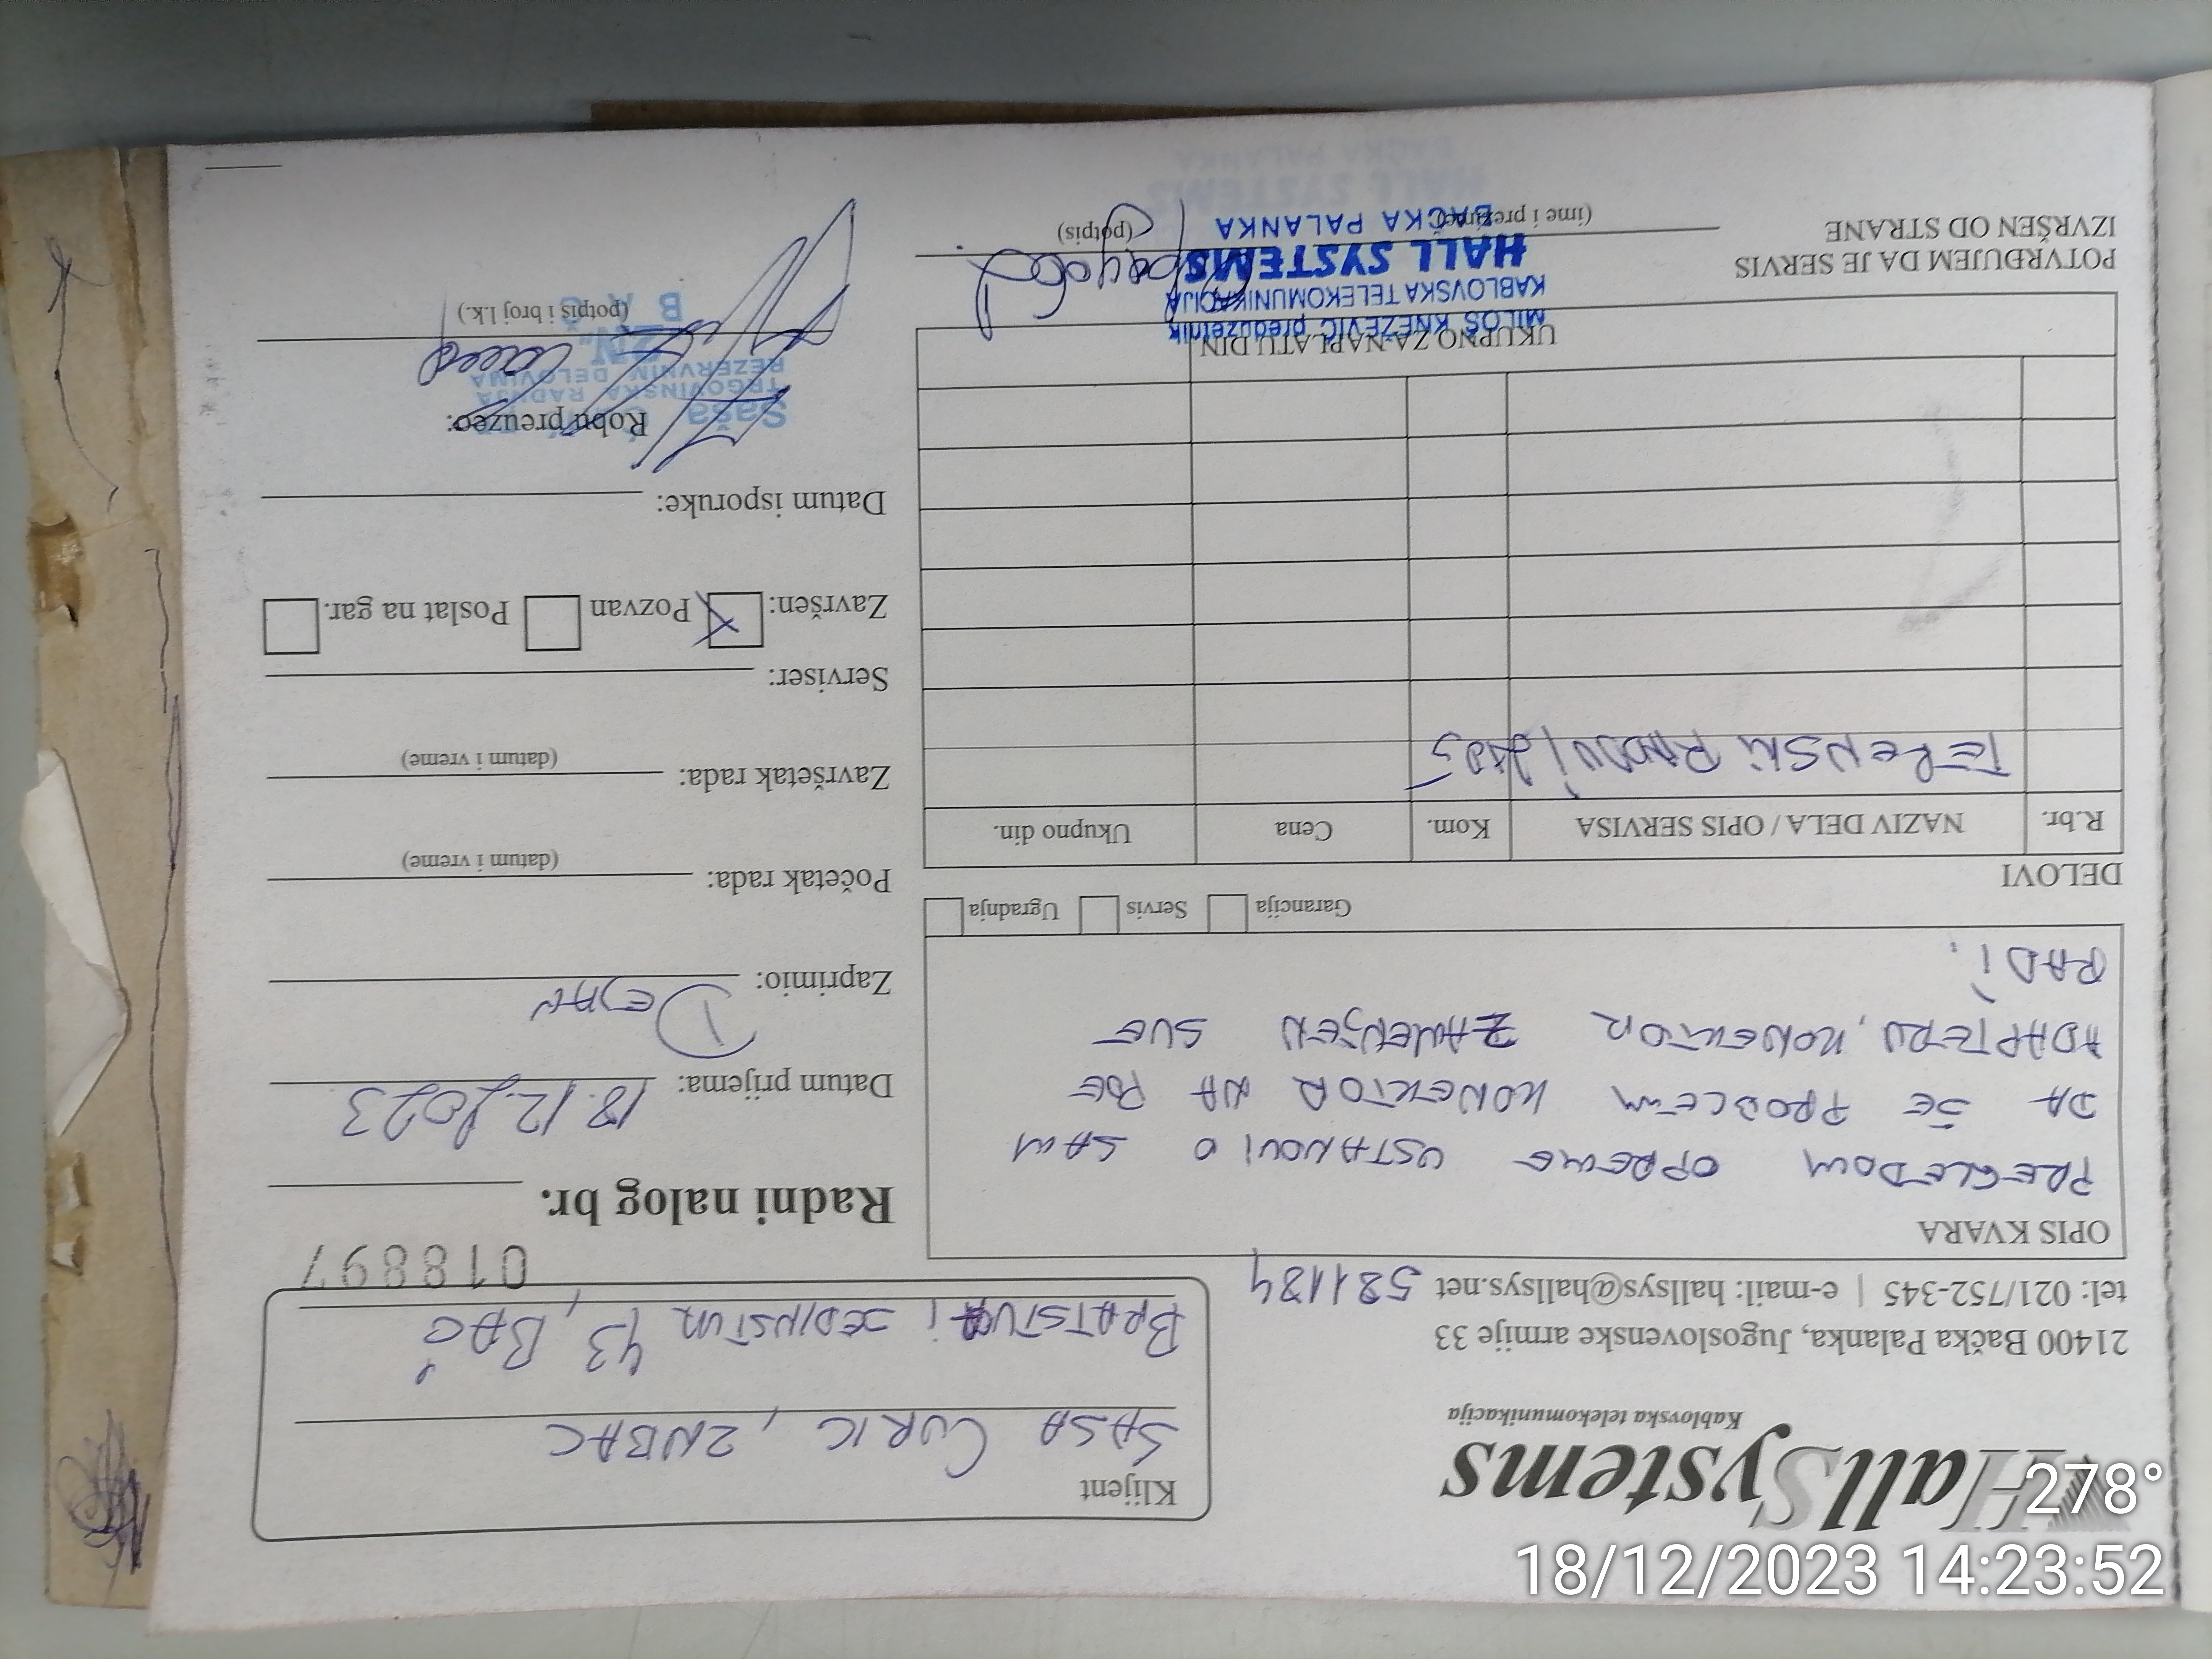 HallSystems
Kablovska telekomunikacija
21400 Bačka Palanka, Jugoslovenske armije 33
tel: 021/752-345 | e-mail: hallsys@hallsys.net 581184
Klijent
ŠASA CURIC, ZNBAC
BRATSTVA i JEDINSTVA 43, BAČ
018897
Radni nalog br.
OPIS KVARA
PREGLEDOM OPREME USTANOVIO SAM
DA JE PROBLEM KONEKTOR NA POE
ADAPTERU, KONEKTOR ZAMENJEN SVE
RADI.
Garancija Servis Ugradnja
Datum prijema: 18.12.2023
Zaprimio: DEJAN
Početak rada:
(datum i vreme)
Završetak rada:
(datum i vreme)
Serviser:
Završen: X Pozvan Poslat na gar.
Datum isporuke:
Robu preuzeo:
(potpis i broj l.k.)
DELOVI
R.br. NAZIV DELA / OPIS SERVISA Kom. Cena Ukupno din.
TERENSKI RADNI
UKUPNO ZA NAPLATU DIN.
POTVRĐUJEM DA JE SERVIS
IZVRŠEN OD STRANE
(ime i prezime)
(potpis)
MILOŠ KNEŽEVIĆ preduzetnik
KABLOVSKA TELEKOMUNIKACIJA
HALL SYSTEMS
BAČKA PALANKA
HALL SYSTEMS
BAČKA PALANKA
Saša
TRGOVINSKA RADNJA
REZERVNIM DELOVIMA
"ZN"
BAČ
278°
18/12/2023 14:23:52